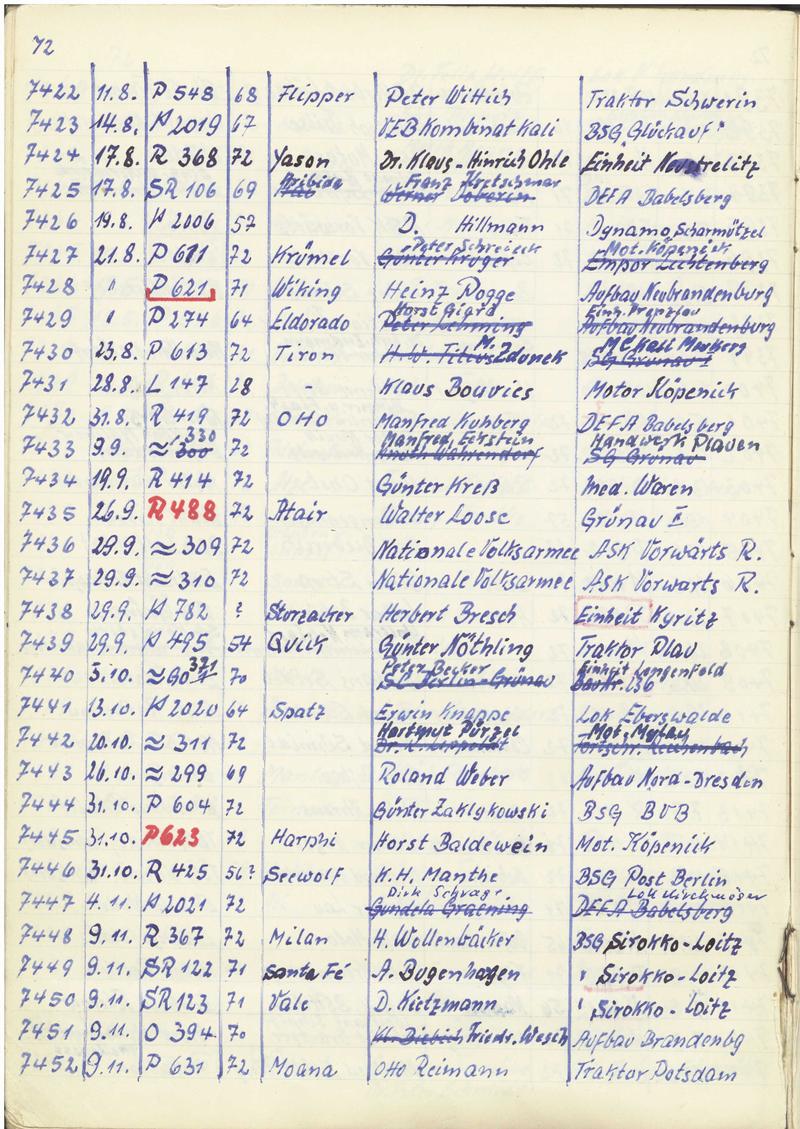 72
7422 11.8. P 548 68 Flipper Peter Wittich Traktor Schwerin
7423 14.8. K 2019 67 VEB Kombinat Kali BSG "Glückauf"
7424 17.8. R 368 72 Yason Dr. Klaus-Hinrich Ohle Einheit Neustrelitz
Franz Kretschmar
7425 17.8. SR 106 69 Werner Doberin DEFA Babelsberg
7426 19.8. K 2006 57 D. Hillmann Dynamo Scharmützel
Peter Schreieck Mot. Köpenick
7427 21.8. P 611 72 Krümel Günter Krüger Empor Lichtenberg
7428 " P 621 71 Wiking Heinz Pogge Aufbau Neubrandenburg
Horst Giard Einh. Prenzlau
7429 " P 274 64 Eldorado Peter Aufbau Neubrandenburg
MC Kali Merkerg
7430 23.8. P 613 72 Tiron H.W. Titius M. Zdunek SG Grünau I
7431 28.8. L 147 28 Klaus Bouvries Motor Köpenick
7432 31.8. R 419 72 OHO Manfred Kuhberg DEFA Babelsberg
330 Manfred Eckstein Handwerk Plauen
7433 9.9. ≈ 300 72 Knuth Wahrendorf SG Grünau
7434 19.9. R 414 72 Günter Kreß Med. Waren
7435 26.9. R 488 72 Atair Walter Loose Grünau I
7436 29.9. ≈ 309 72 Nationale Volksarmee ASK Vorwärts R.
7437 29.9. ≈ 310 72 Nationale Volksarmee ASK Vorwärts R.
7438 29.9. K 782 ? Sturzacker Herbert Bresch Einheit Kyritz
7439 29.9. K 495 54 Quick Günter Nöthling Traktor Plau
321 Peter Becker Einheit Lengenfeld
7440 5.10. ≈ 70 SC Berlin-Grünau
7441 13.10. K 2020 64 Spatz Erwin Knappe Lok Eberswalde
Hartmut Pürzel Mot. Mylau
7442 20.10. ≈ 311 72 Dr. K. Lippoldt Fortschr. Reichenbach
7443 26.10. ≈ 299 69 Roland Weber Aufbau Nord-Dresden
7444 31.10. P 604 72 Günter Zaklykowski BSG BVB
7445 31.10. P 623 72 Harphi Horst Baldewein Mot. Köpenick
7446 31.10. R 425 56? Seewolf K.H. Manthe BSG Post Berlin
Dirk Schrage Lok Kirchmöser
7447 4.11. K 2021 72 Gundela Graening DEFA Babelsberg
7448 9.11. R 367 72 Milan H. Wollenbäcker BSG Sirokko-Loitz
7449 9.11. SR 122 71 Santa Fé A. Bugenhagen " Sirokko-Loitz
7450 9.11. SR 123 71 Vale D. Kietzmann " Sirokko-Loitz
7451 9.11. O 394 70 Kl. Diebich Friedr. Wesch Aufbau Brandenbg
7452 9.11. P 631 72 Moana Otto Reimann Traktor Potsdam